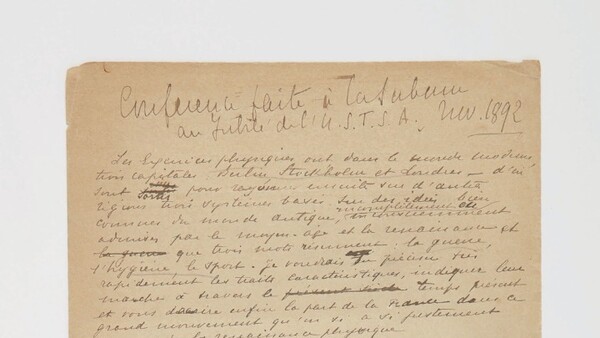 Conférence faite à la Sorbonne
au Jubilé de l'U.S.F.S.A. Nov. 1892
Les Exercices physiques ont dans le monde moderne
trois capitales: Berlin, Stockholm et Londres — d'où
sont sortis pour rayonner ensuite
trois systèmes basés sur des idées bien
connues du monde antique, inconsciemment
admises par le moyen-age et la renaissance et
la guerre que trois mots résument: la guerre,
l'hygiène, le sport. Je voudrais en préciser très
rapidement les traits caractéristiques, indiquer leur
marche à travers le présent siècle temps présent
et vous enfin la part de la France dans ce
grand mouvement qu'on a si justement
la renaissance physique